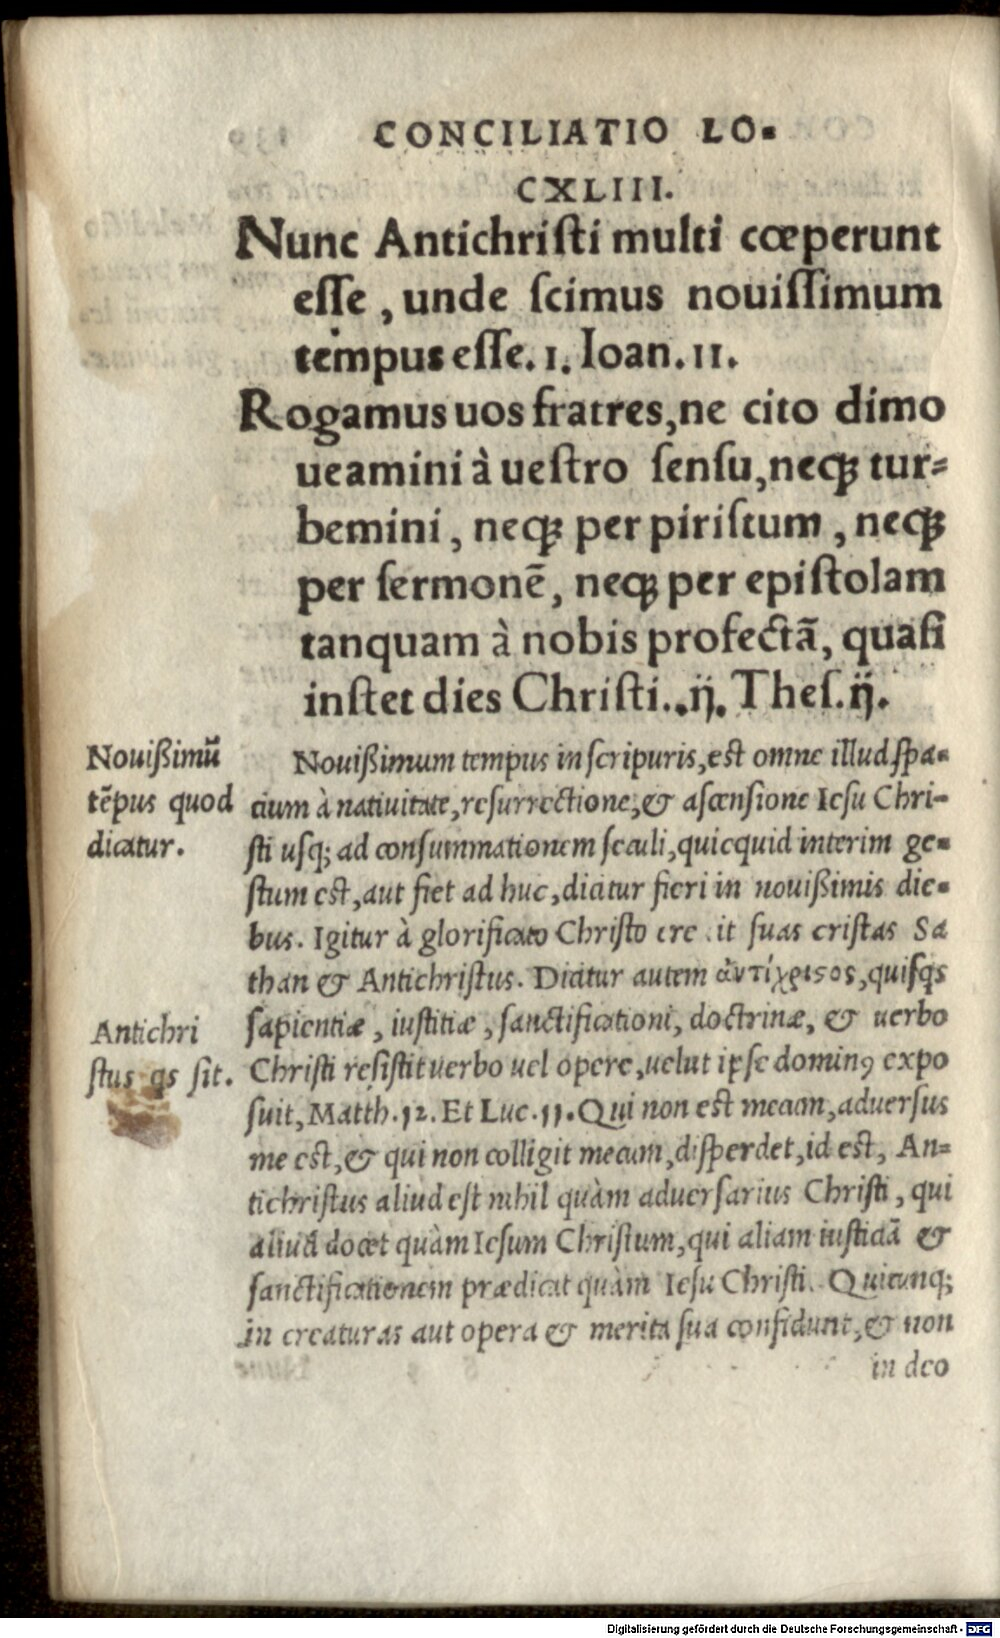 CONCILIATIO LO-
CXLIII.
Nunc Antichriſti multi cœperunt
eſſe, unde ſcimus nouiſſimum
tempus eſſe. 1. Ioan. 11.
Rogamus uos fratres, ne cito dimo
ueamini à ueſtro ſenſu, neqꝫ tur-
bemini, neqꝫ per piriſtum, neqꝫ
per ſermonē, neqꝫ per epiſtolam
tanquam à nobis profectã, quaſi
inſtet dies Chriſti. ij. Theſ. ij.
Nouißimũ
tẽpus quod
dicatur.
Nouißimum tempus in ſcripuris, eſt omne illud ſpa-
cium à natiuitate, reſurrectione, & aſcenſione Ieſu Chri-
ſti uſqꝫ ad conſummationem ſeculi, quicquid interim ge-
ſtum eſt, aut fiet ad huc, dicitur fieri in nouißimis die-
bus. Igitur à glorificato Chriſto ere it ſuas criſtas Sa
than & Antichriſtus. Dicitur autem ἀντίχριϛος, quiſqs
ſapientiæ, iuſtitiæ, ſanctificationi, doctrinæ, & uerbo
Chriſti reſiſtit uerbo uel opere, uelut ipſe dominꝰ expo
ſuit, Matth. 12. Et Luc. 11. Qui non eſt mecum, aduerſus
me eſt, & qui non colligit mecum, diſperdet, id eſt, An-
tichriſtus aliud eſt nihil quàm aduerſarius Chriſti, qui
aliud docet quàm Ieſum Chriſtum, qui aliam iuſticiã &
ſanctificationem prædicat quàm Ieſu Chriſti. Quicunqꝫ
in creaturas aut opera & merita ſua confidunt, & non
in deo
Antichri
ſtus qs ſit.
Digitalisierung gefördert durch die Deutsche Forschungsgemeinschaft - DFG